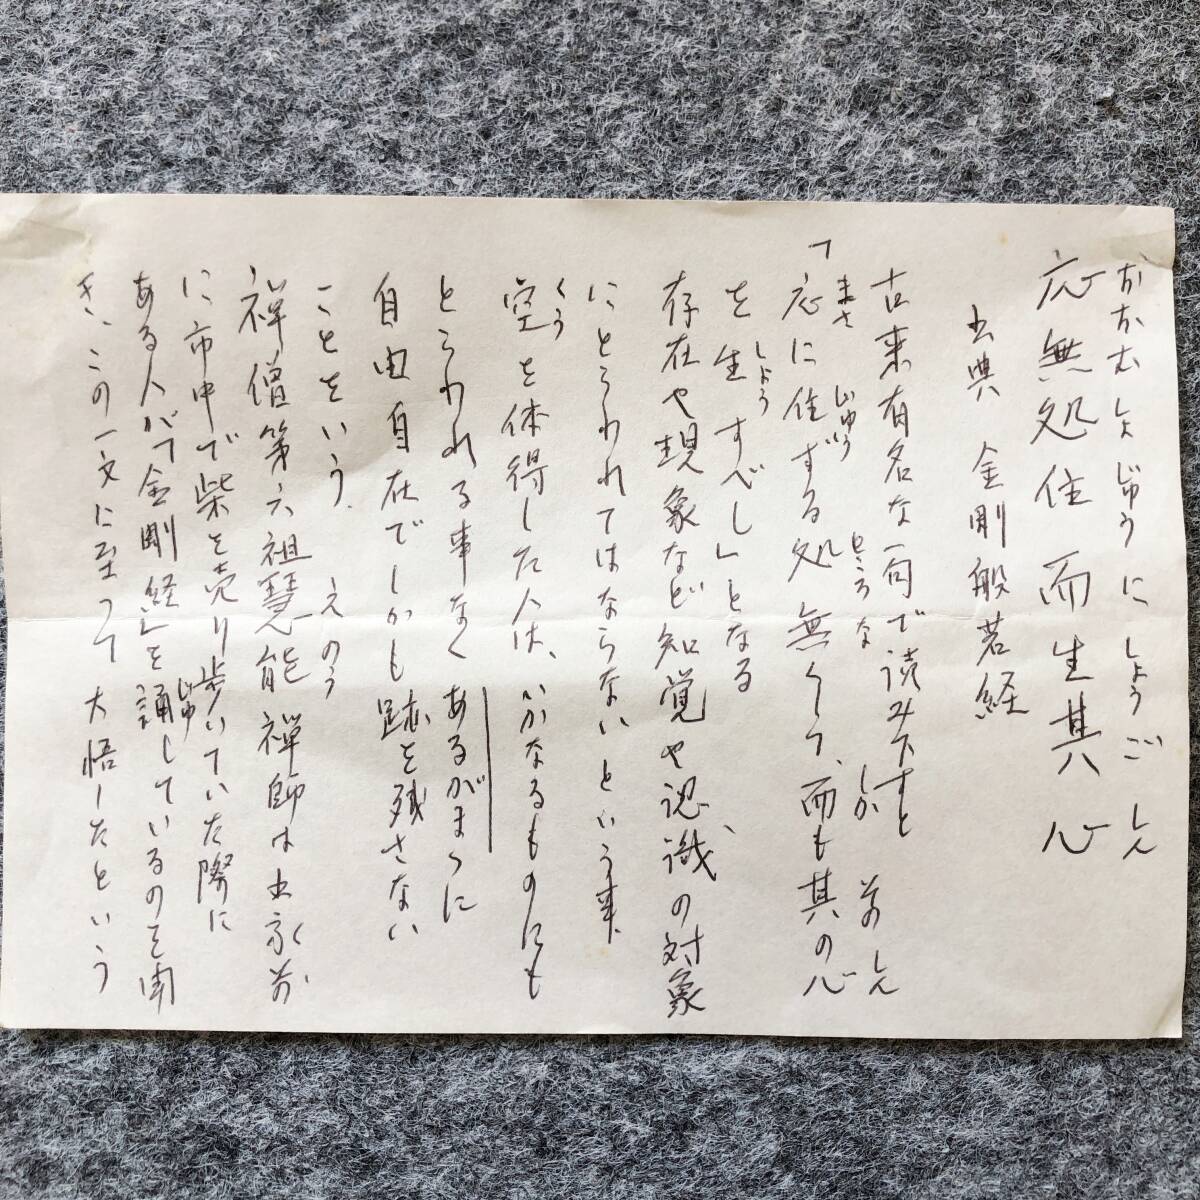 おおむしょじゅうにしょうごしん
応無処住而生其心
出典 金剛般若経
古来有名な一句で読み下すと
まさ じゅう ところ な しか そ の しん
「応に住ずる処無くして、而も其の心
しょう
を生すべし」となる
存在や現象など知覚や認識の対象
にとらわれてはならないという事、
くう
空を体得した人は、いかなるものにも
とらわれる事なくあるがまゝに
自由自在でしかも跡を残さない
ことをいう.
えのう
禅僧第六祖慧能禅師は出家前
に市中で柴を売り歩いていた際に
じゅ
ある人が「金剛経」を誦しているのを聞
き、この一文に至って大悟したという